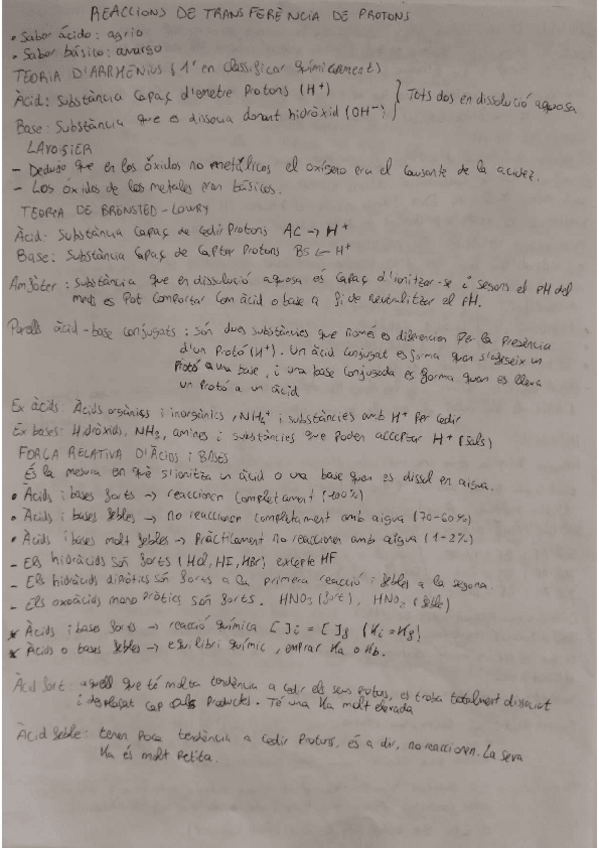 REACCIONS DE TRANSFERÈNCIA DE PROTONS
• Sabor ácido: agrio
• Sabor básico: amargo
TEORIA D'ARRHENIUS (1r en classificar químicament)
Àcid: Substància capaç d'emetre Protons (H⁺)
Base: Substància que es dissocia donant hidròxid (OH⁻)
} Tots dos en dissolució aquosa
LAVOISIER
- Dedujo que en los óxidos no metálicos el oxígeno era el causante de la acidez.
- Los óxidos de los metales eran básicos.
TEORIA DE BRÖNSTED-LOWRY
Àcid: Substància capaç de cedir Protons AC → H⁺
Base: Substància capaç de captar Protons BS ← H⁺
Amfòter: substància que en dissolució aquosa és capaç d'ionitzar-se i segons el PH del
medi es Pot comportar com àcid o base a fi de neutralitzar el PH.
Parells àcid-base conjugats: són dues substàncies que només es diferencien per la Presència
d'un Protó (H⁺). Un àcid conjugat es forma quan s'afegeix un
Protó a una base, i una base conjugada es forma quan es lleva
un Protó a un àcid
Ex àcids: Àcids orgànics i inorgànics, NH₄⁺ i substàncies amb H⁺ per cedir
Ex bases: Hidròxids, NH₃, amines i substàncies que poden acceptar H⁺ (sals)
FORÇA RELATIVA D'ÀCIDS I BASES
És la mesura en què s'ionitza un àcid o una base quan es dissol en aigua.
• Àcids i bases forts → reaccionen completament (~100%)
• Àcids i bases febles → no reaccionen completament amb aigua (70-60%)
• Àcids i bases molt febles → Pràcticament no reaccionen amb aigua (1-2%)
- Els hidràcids són forts (HCl, HI, HBr) excepte HF
- Els hidràcids dipròtics són forts a la primera reacció i febles a la segona.
- Els oxoàcids monopròtics són forts. HNO₃ (fort), HNO₂ (feble)
* Àcids i bases forts → reacció química [ ]i = [ ]f
* Àcids o bases febles → equilibri químic, emprar Ka o Kb.
Àcid fort: aquell que té molta tendència a cedir els seus protons, es troba totalment dissociat
i desplaçat cap als Productes. Té una Ka molt elevada
Àcid feble: tenen poca tendència a cedir Protons, és a dir, no reaccionen. La seva
Ka és molt petita.